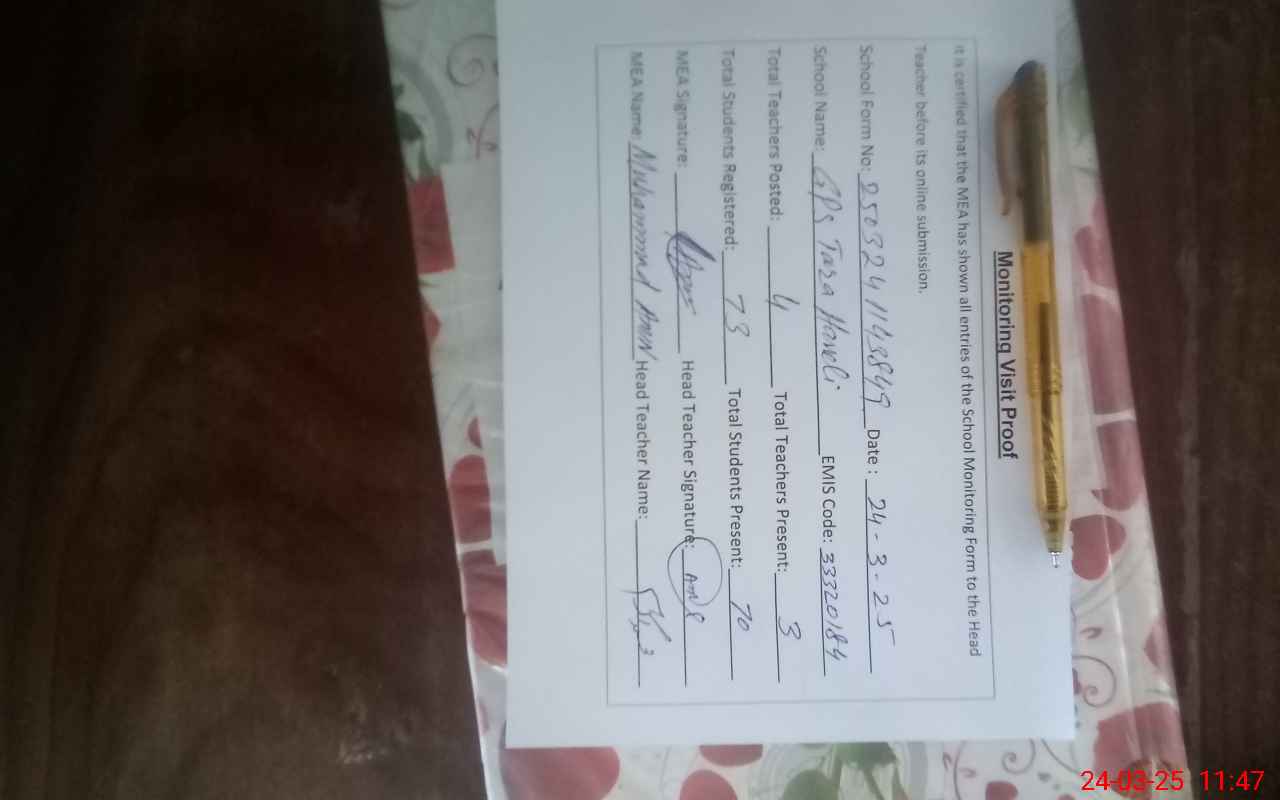 Monitoring Visit Proof
It is certified that the MEA has shown all entries of the School Monitoring Form to the Head
Teacher before its online submission.
School Form No: 25032411498949 Date : 24-3-25
School Name: GPS Tara Haveli EMIS Code: 33320184
Total Teachers Posted: 4 Total Teachers Present: 3
Total Students Registered: 73 Total Students Present: 70
MEA Signature: Head Teacher Signature:
MEA Name: Muhammad Amin Head Teacher Name:
24-03-25 11:47